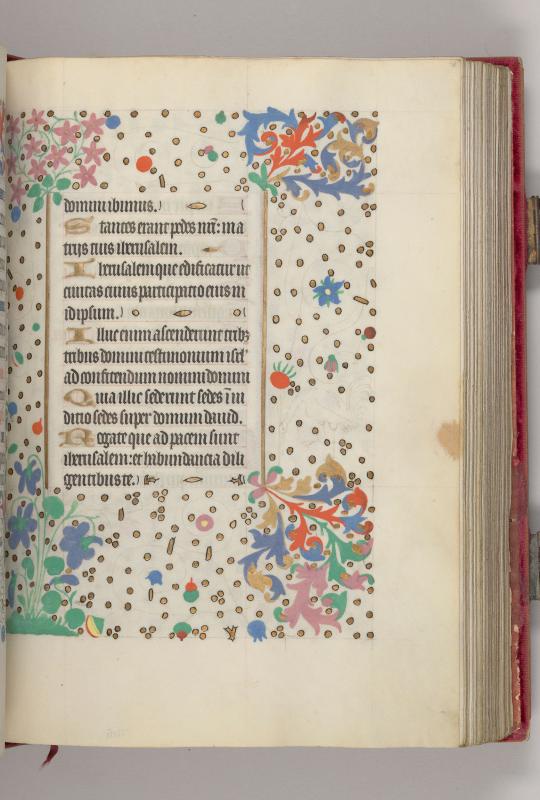 domini ibimus.
Stantes erant pedes nr̄i: in a
trijs tuis iherusalem.
Iherusalem que edificatur ut
ciuitas cuius participatio eius in
idipsum.
Illuc enim ascenderunt tribꝫ
tribus domini testimonium isrl'
ad confitendum nomini domini
Quia illic sederunt sedes ī iu
ditio sedes super domum dauid.
Rogate que ad pacem sunt
iherusalem: et habundancia dili
gentibus te.